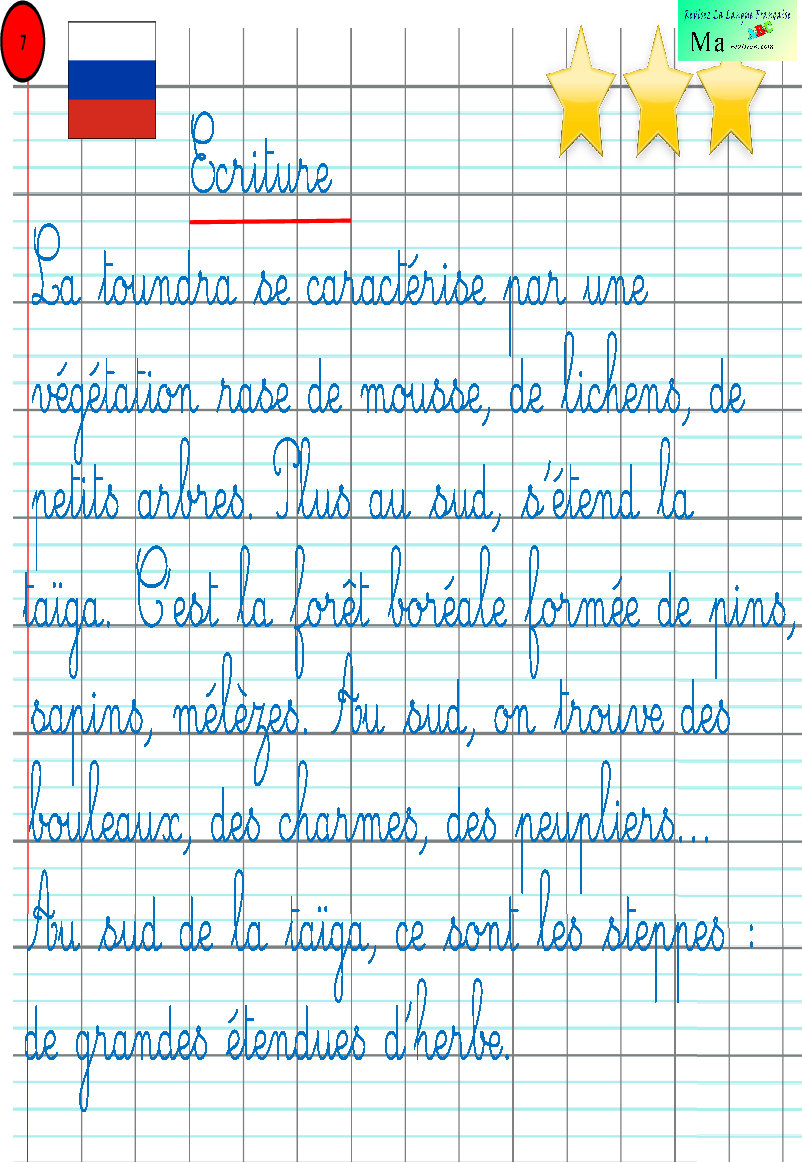 7
Revisez La Langue Française
ABC
Ma maitresse.com
Ecriture
La toundra se caractérise par une
végétation rase de mousse, de lichens, de
petits arbres. Plus au sud, s'étend la
taïga. C'est la forêt boréale formée de pins,
sapins, mélèzes. Au sud, on trouve des
bouleaux, des charmes, des peupliers...
Au sud de la taïga, ce sont les steppes :
de grandes étendues d'herbe.